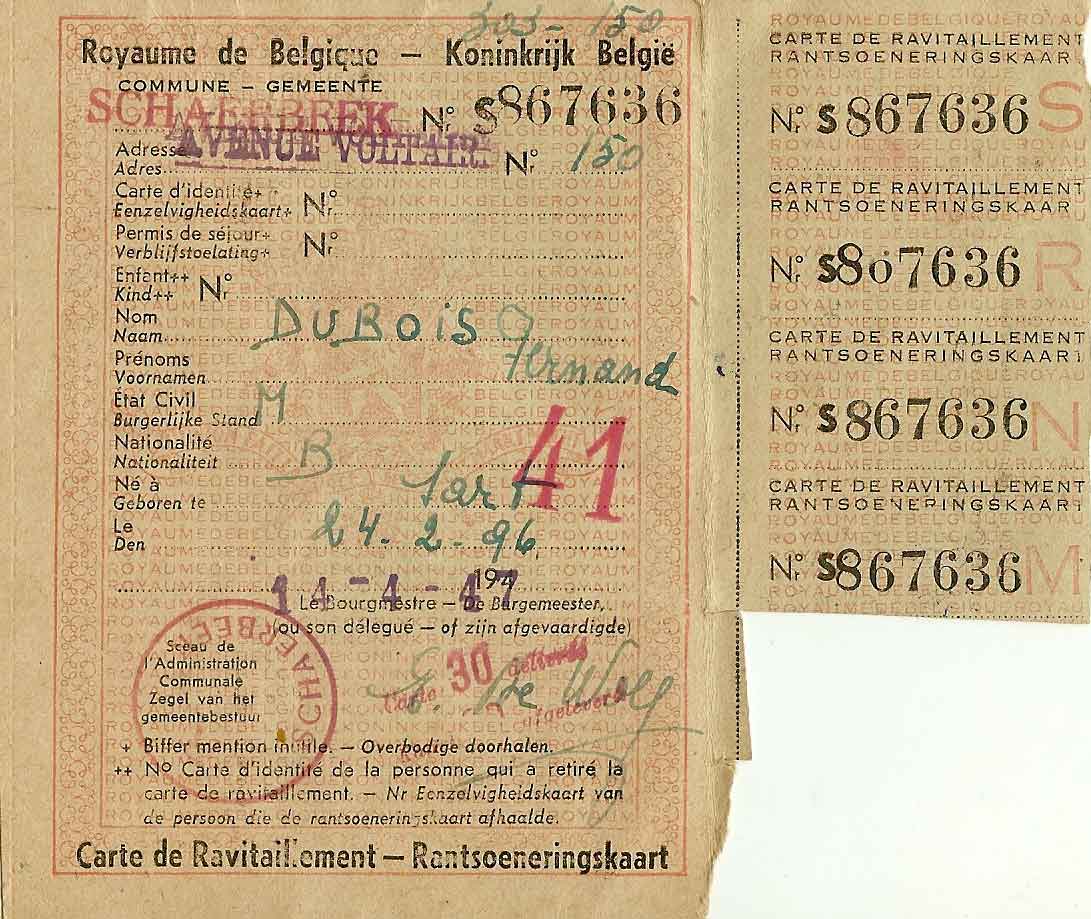 303-150
Royaume de Belgique – Koninkrijk België
COMMUNE – GEMEENTE
SCHAERBEEK
No S867636
Adresse AVENUE VOLTAIRE No 150
Adres
Carte d'identité+ No
Eenzelvigheidskaart+
Permis de séjour+ No
Verblijfstoelating+
Enfant++ No
Kind++
Nom DUBOIS
Naam
Prénoms Fernand
Voornamen
État Civil M
Burgerlijke Stand
Nationalité B
Nationaliteit
41
Né à Sart
Geboren te
Le 24-2-96
Den
194
14-4-47
Le Bourgmestre – De Burgemeester,
(ou son délegué – of zijn afgevaardigde)
SCHAERBEEK
Sceau de
l'Administration
Communale
Zegel van het
gemeentebestuur
Carte 30 delivrée
De Wolf
afgeleverd
+ Biffer mention inutile. – Overbodige doorhalen.
++ No Carte d'identité de la personne qui a retiré la
carte de ravitaillement. – Nr Eenzelvigheidskaart van
de persoon die de rantsoeneringskaart afhaalde.
Carte de Ravitaillement – Rantsoeneringskaart
CARTE DE RAVITAILLEMENT
RANTSOENERINGSKAART
No S867636 S
CARTE DE RAVITAILLEMENT
RANTSOENERINGSKAAR
No S867636 R
CARTE DE RAVITAILLEMENT
RANTSOENERINGSKAART
No S867636 N
CARTE DE RAVITAILLEMENT
RANTSOENERINGSKAART
No S867636 M